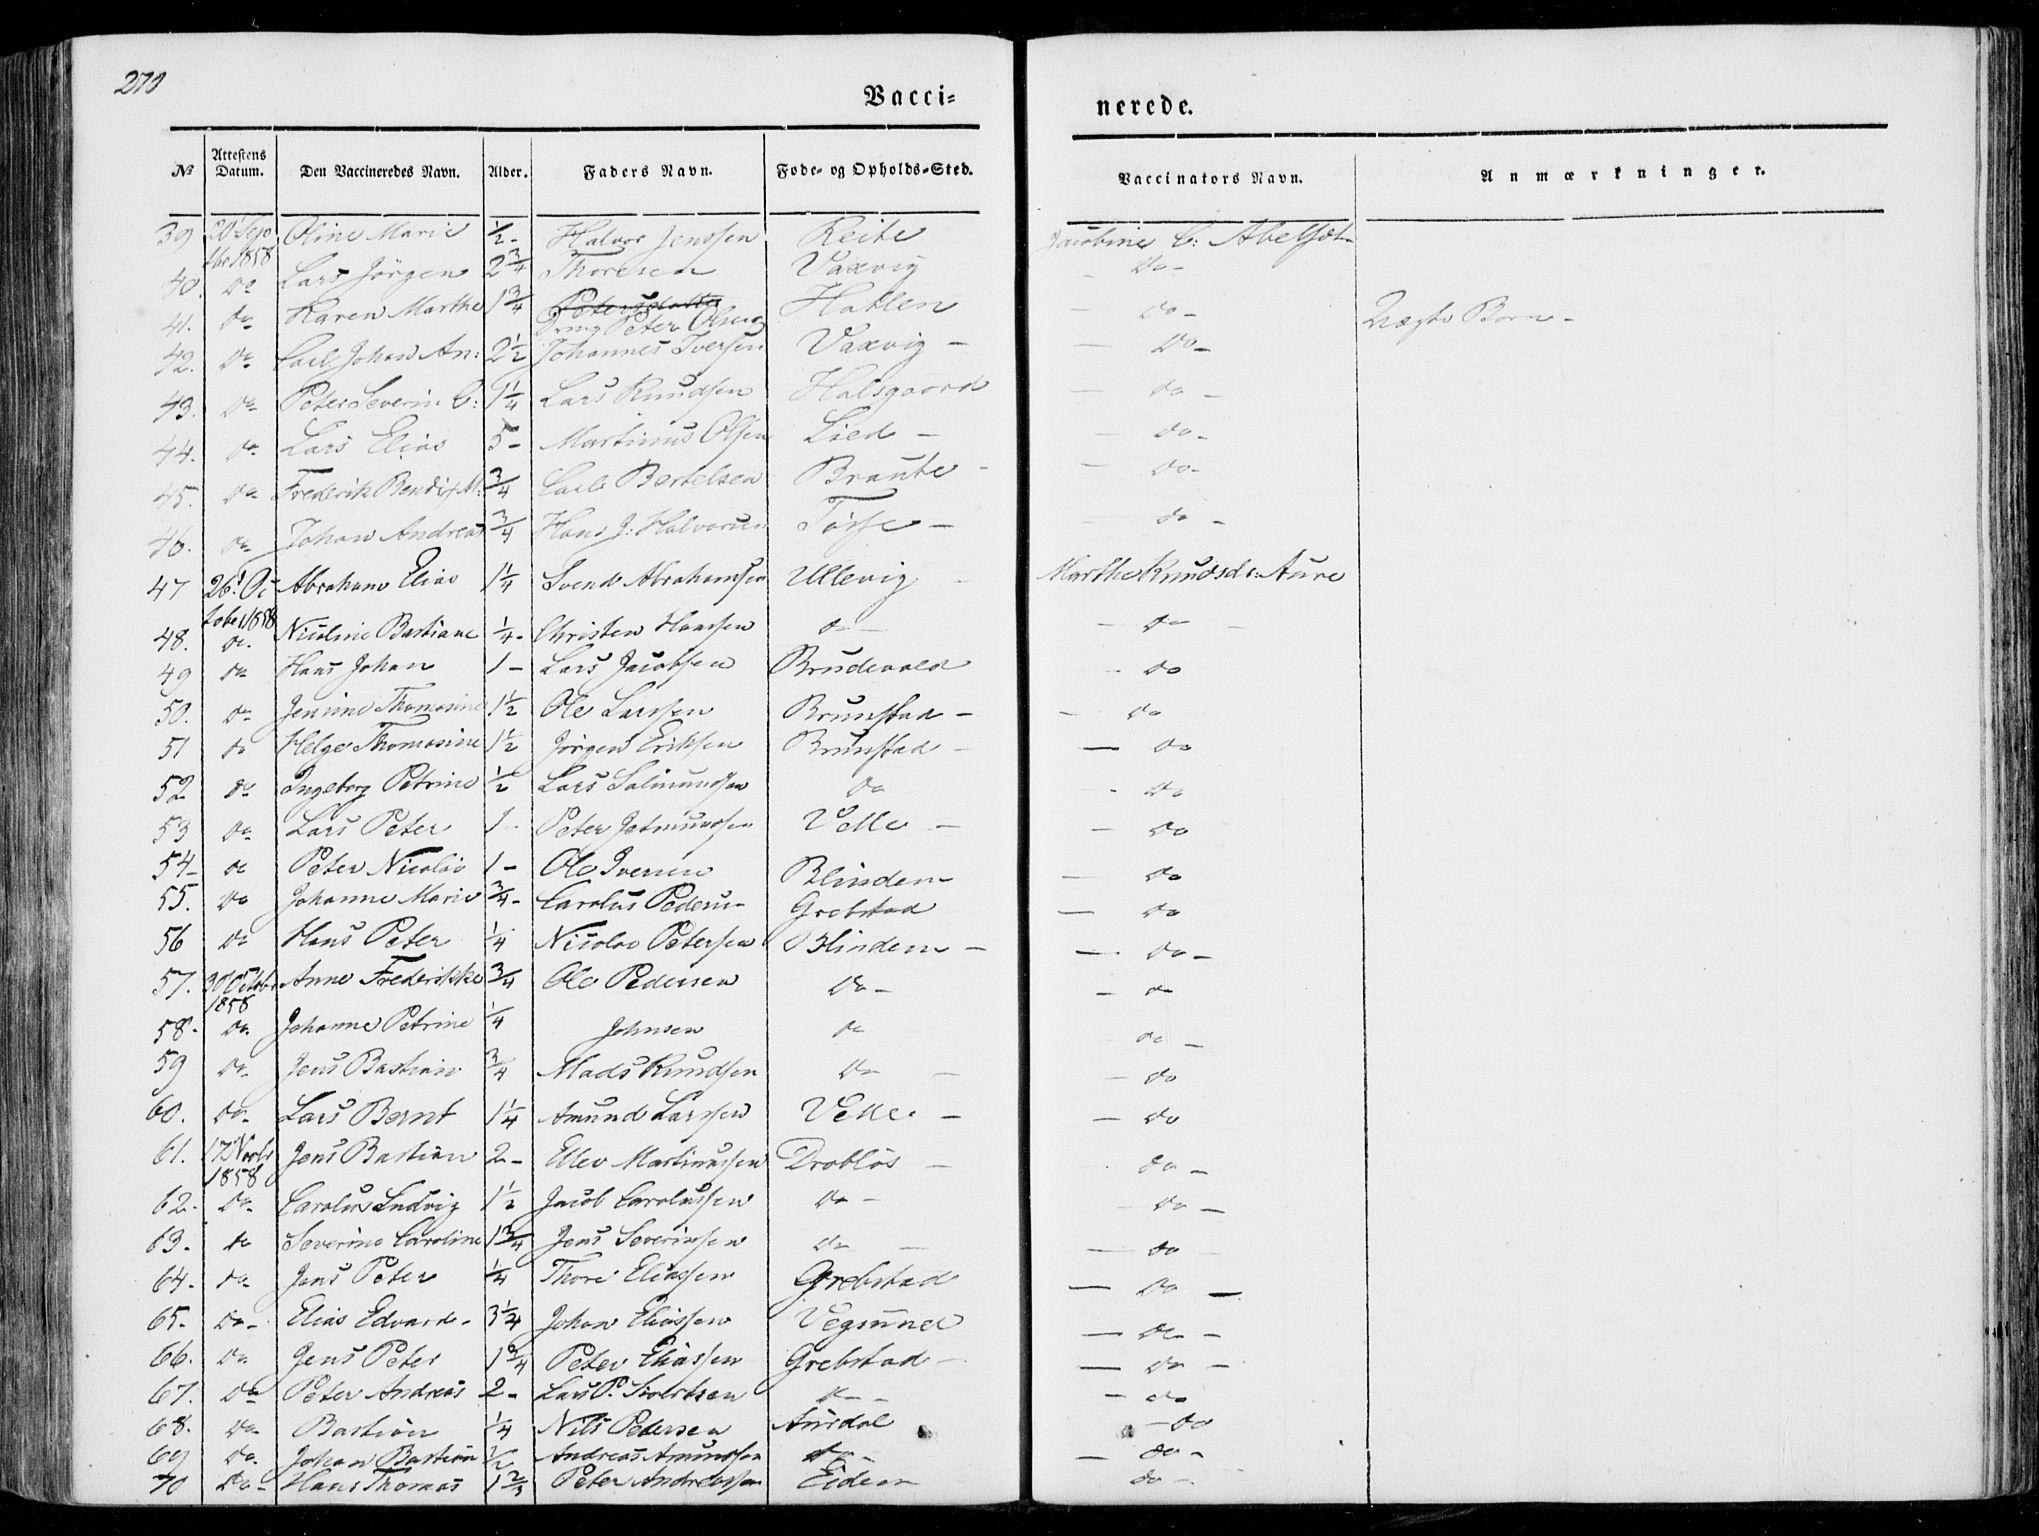 270
Vacci=
nerede.
№ Attestens Datum. Den Vaccineredes Navn. Alder. Faders Navn. Føde- og Opholds-Sted. Vaccinators Navn. Anmærkninger.
39 20 Sep tbr 1858 Oline Marie ½ - Halvor Jenssen Reite Jacobine C:
40. do Lars Jörgen 2¾ Thoresen Vaxvig - do -
41. do Karen Marthe 1¾ Peter Olsen Hatlen - do - Uægte Barn -
42. do Carl Johan An: 2½ Johannes Iversen Vaxvig - - do -
43. do Peter Severin C: 1¼ Lars Knudsen Halsgaard - do -
44. do Lars Elias 5 - Martinus Olsen Lied - - do -
45. do Frederik Bendix M: ¾ Carl Bertelsen Braute - - do -
46. do Johan Andreas ¾ Hans J: Halvorsen Tosse - - do -
47 26. Oc tober 1858 Abraham Elias 1¼ Svend Abrahamsen Ullevig - Marthe Knudsd: Aure
48. do. Nicoline Bastiane ¼ - Christen Hanssen do - - do -
49 do Hans Johan 1 - Lars Jacobsen Brudevold - do
50. do Jensine Thomasine 1½ Ole Larssen Brunstad - - do
51 do Helge Thomasine 1½ Jörgen Eriksen Brunstad - - do
52 do Ingeborg Petrine ½ Lars Salmundsen do - do
53 do Lars Peter 1 - Peter Jetmundsen Velle - - do
54 - do Peter Nicolai 1 - Ole Iversen Blindem - do
55. do Johanne Marie ¾ - Carolus Pedersen Grebstad - do
56 do Hans Peter ¼ Nicolai Petersen Blindem - - do -
57. 30 Octobr 1858 Anne Frederikke ¾ Ole Pedersen do - - do
58. do. Johanne Petrine ¼ Johnsen do do -
59 do Jens Bastian ¾ Mads Knudsen do - - do
60. do Lars Bernt 1¼ Amund Larssen Velle - - do
61. 17 Novbr 1858 Jens Bastian 2 - Ellev Martinussen Droblos - do -
62. do Carolus Ludvig 1½ Jacob Carolussen do - - do -
63. do Severine Caroline 1¾ Jens Severinsen do - - do
64. do Jens Peter ¼ Thore Eliassen Grebstad - do -
65. do - Elias Edvard - 3¼ Johan Eliassen Vegsund - do -
66. do Jens Peter 1¾ Peter Eliassen Grebstad - - do -
67. do Peter Andreas 2 - Lars P. Sivertsen do - - do
68. do Bastian ¼ Nils Pedersen Aursdal - do
69 do. Johan Bastian ½ Andreas Amundsen do - - do -
70 do - Hans Thomas 1⅔ Peter Andreassen Eidem do -